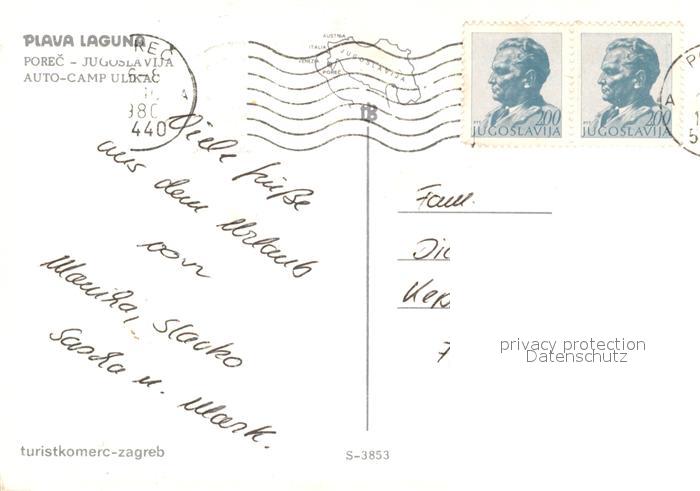 PLAVA LAGUNA
POREČ – JUGOSLAVIJA
AUTO-CAMP ULIKA
REČ
980
440
A
AUSTRIA
ITALIA
VENEZIA
POREČ
JUGOSLAVIJA
PTT 200
JUGOSLAVIJA
PTT 200
JUGOSLAVIJA
A
Viele Grüße
aus dem Urlaub
von
Monika, Slavko
Sascha u. Mark.
Fam.
privacy protection
Datenschutz
turistkomerc-zagreb
S-3853